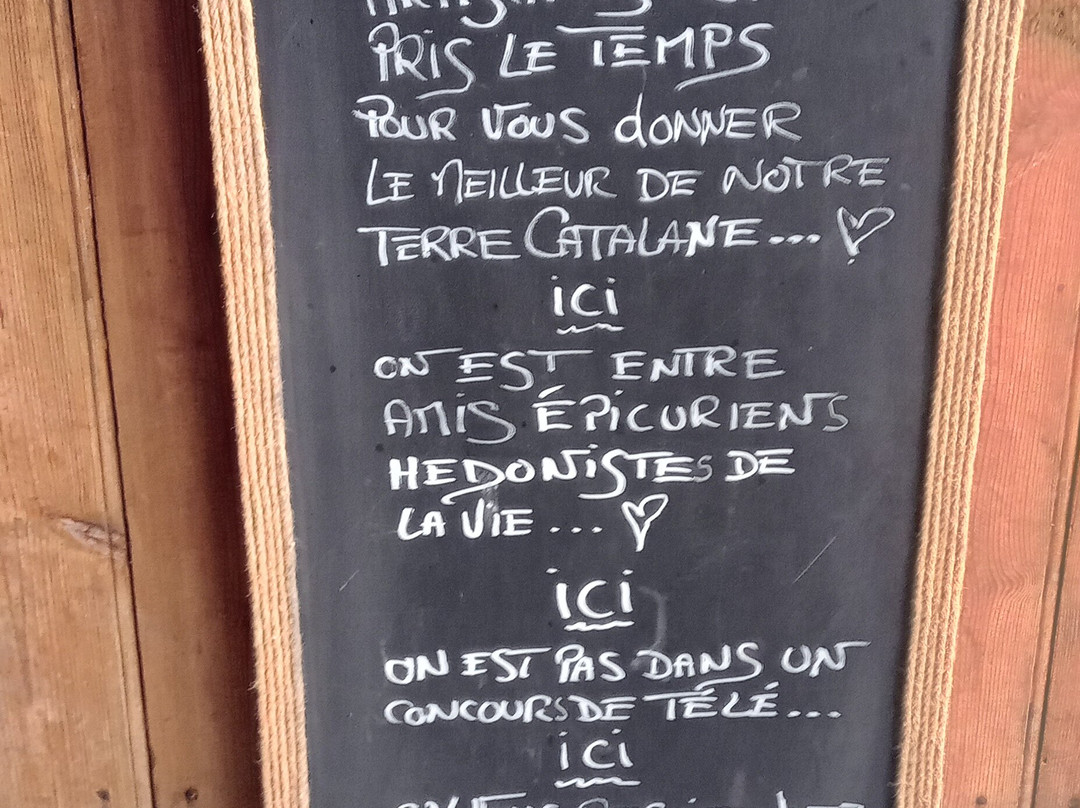 PRIS LE TEMPS
POUR VOUS dONNER
LE MEILLEUR DE NOTRE
TERRE CATALANE... ♡
ici
ON EST ENTRE
AMIS ÉPICURIENS
HEDONISTES DE
LA VIE... ♡
ici
ON EST PAS DANS UN
CONCOURS DE TÉLÉ...
ici